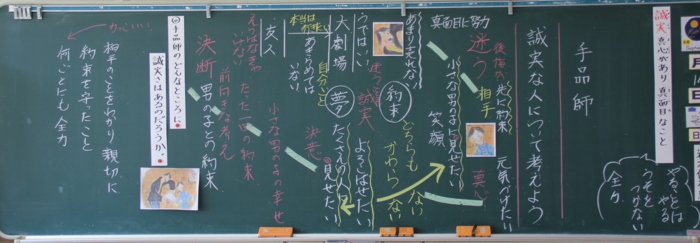 誠実 真心があり 真面目なこと
やることは
やる
うそを
つかない
全力
手品師
誠実な人について考えよう
元気づけたい
先に約束
迷う 相手
小さな男の子に見せたい
笑顔
真面目に努力
あまり売れない
約束
どちらも
かわらない
うではいい
迷う
誠実
よろこばせたい
大劇場
夢
たくさんの人に
見せたい
本当は
あきらめては
いない
自分ごと
決意
友人
小さな男の子の幸せ
たった一回の約束
前向きな考え
決断
男の子との約束
◎手品師のどんなところに
誠実さはあるのだろうか。
かっこいい
相手のことをわかり親切に
約束を守ったこと
何ごとにも全力